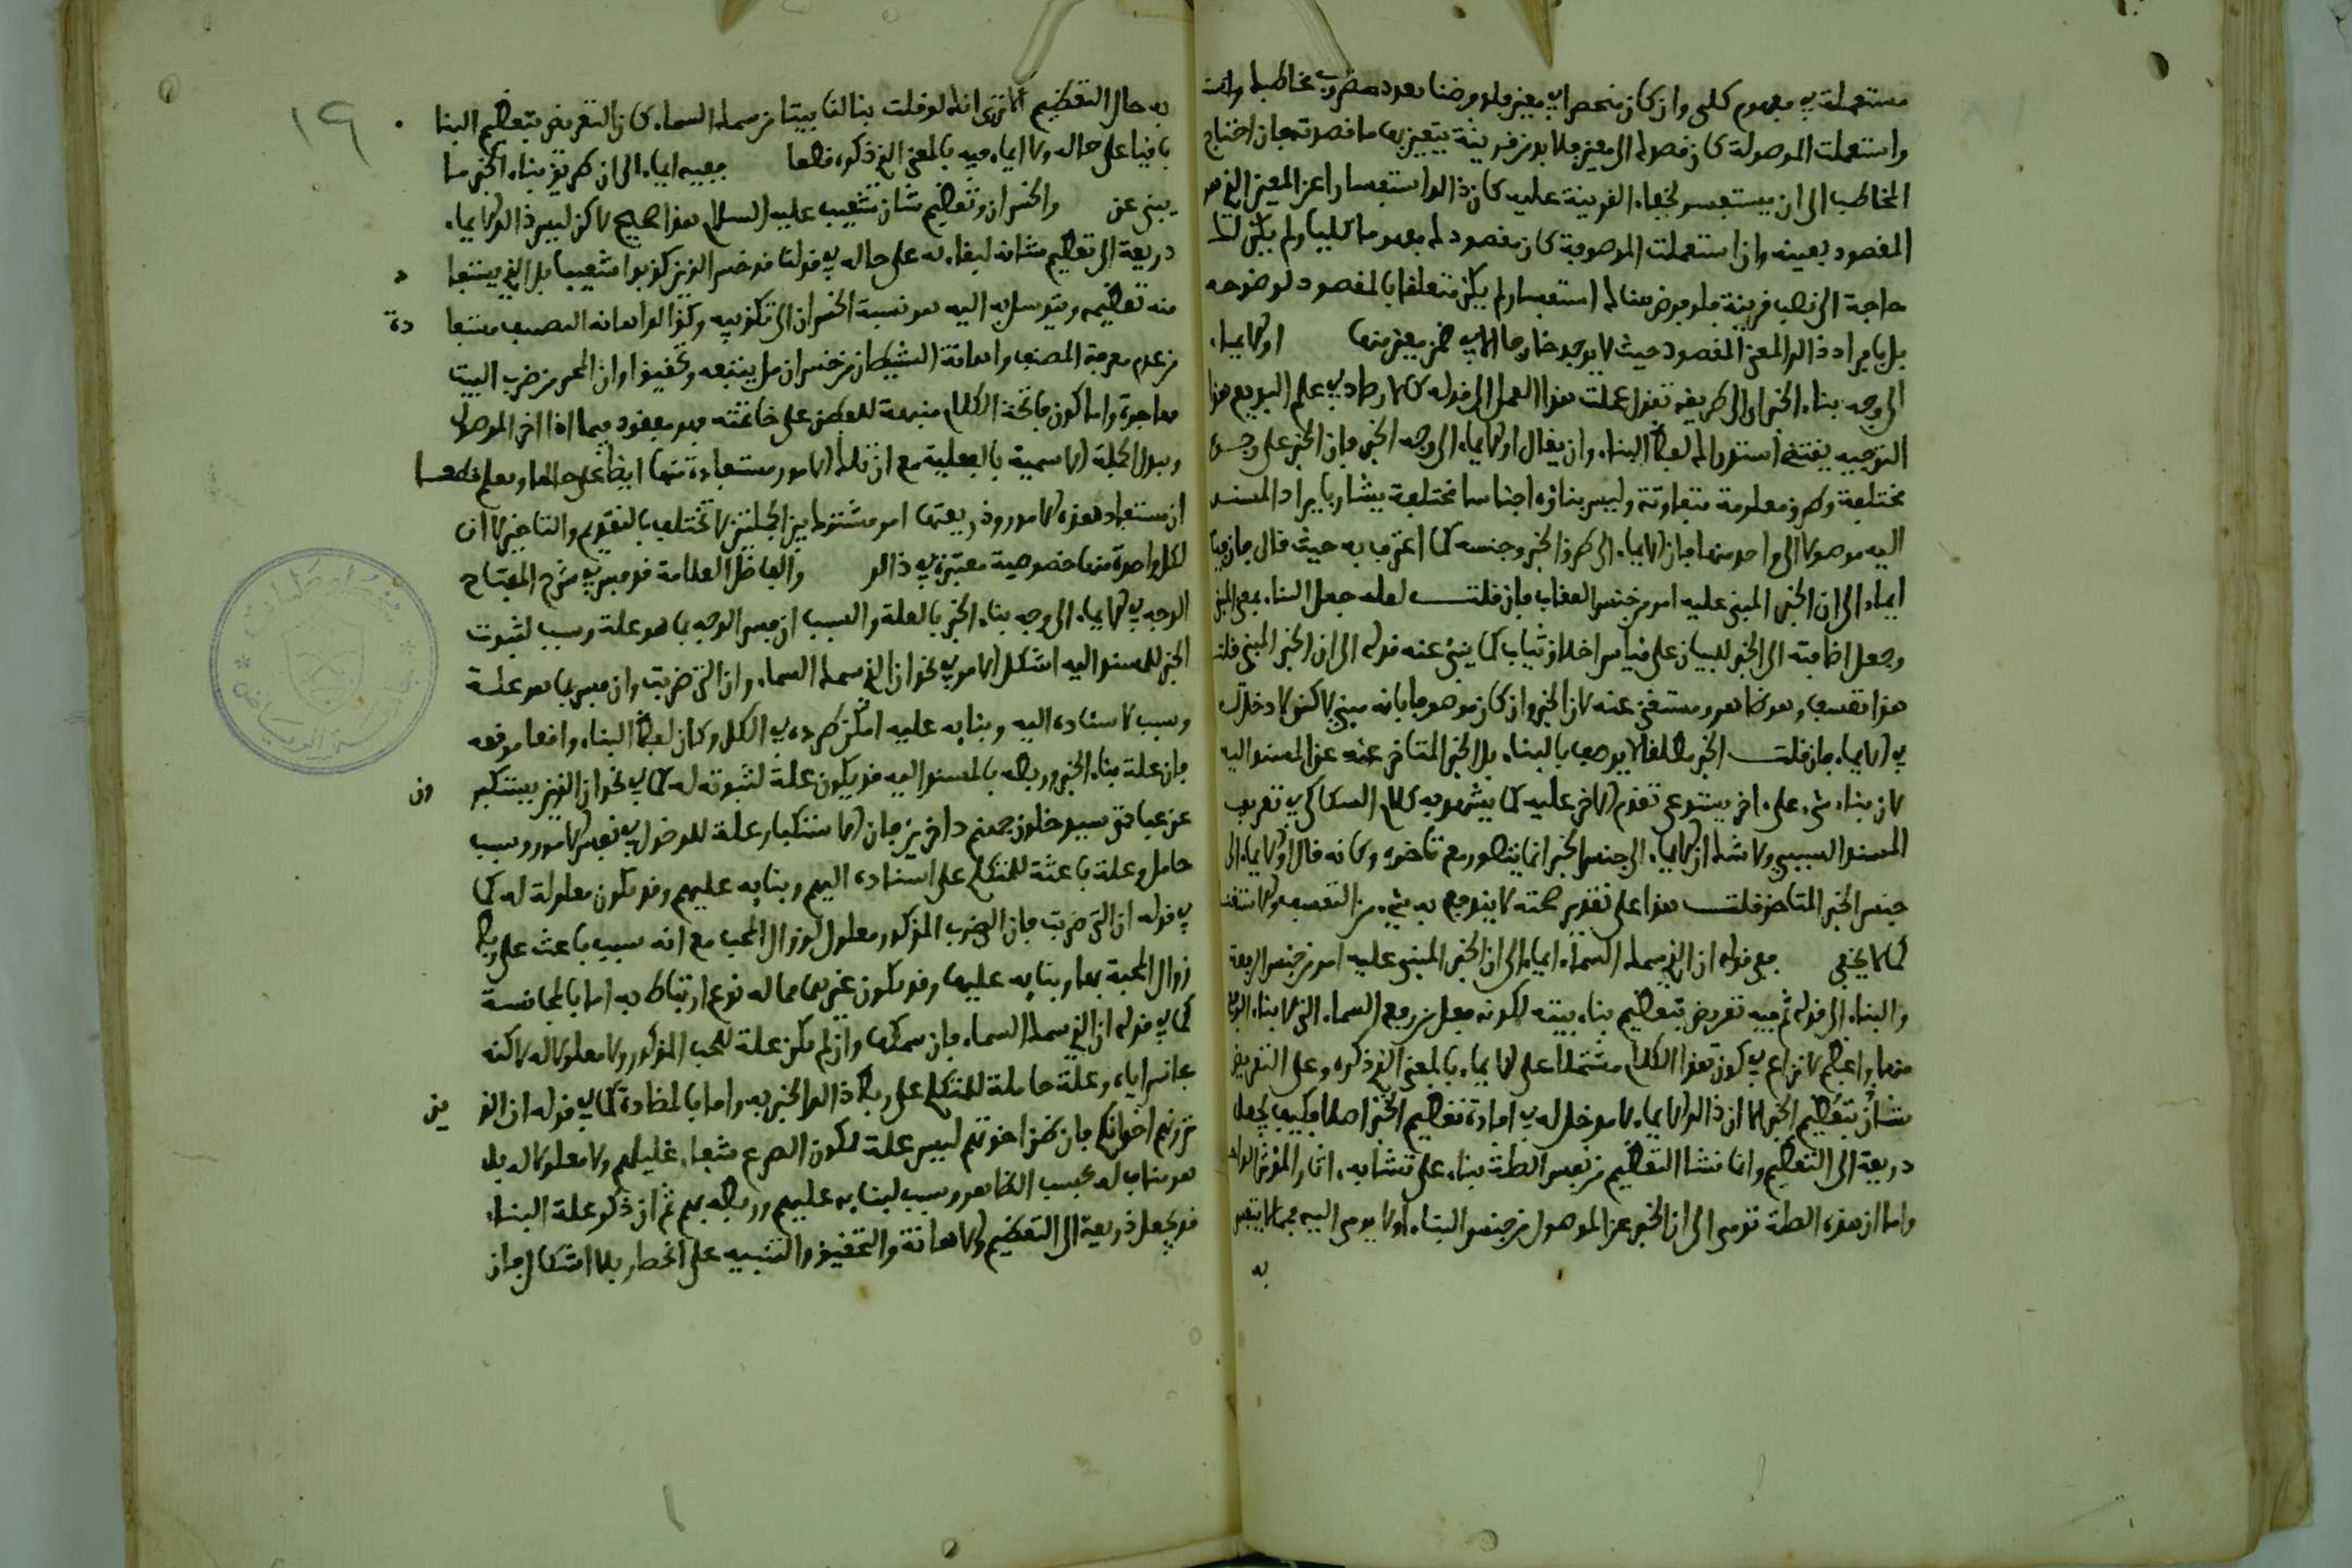 مستعملة في مفهوم كلي وان كان منحصرا في معين فلو فرضنا تعدد مضروب مخاطبك وانت
واستعملت الموصولة كان قصدك الى معين فلا بد من قرينة يتعين بها ما قصدته فان احتاج
المخاطب الى ان يستفسر لخفاء القرينة عليه كان ذالك استفسارا عن المعين الذي هو
المقصود بعينه وان استعملت الموصوفة كان مقصودك مفهوما كليا ولم يكن لك
حاجة الى نصب قرينة فلو فرض هناك استفسار لم يكن متعلقا بالمقصود لوضوحه
بل بافراد ذالك المعنى المقصود حيث لا يوجد خارجا الا في ضمن معين منها او الايماء
الى وجه بناء الخبر اي الى طريقه تقول عملت هذا العمل الى قوله كالارصاد في علم البديع هذا
التوجيه يقتضي استدراك لفظ البناء وان يقال او الايماء الى وجه الخبر فان الخبر على وجوه
مختلفة وطرق معلومة متفاوتة وليس بناؤه اجناسا مختلفة يشار بايراد المسند
اليه موصولا الى واحد منها فان الايماء الى طرق الخبر وجنسه كما اعترف به حيث قال فان فيه
ايماء الى ان الخبر المبني عليه امر من جنس العقاب فان قلت لعله جعل البناء بمعنى المبني
وجعل اضافته الى الخبر للبيان على قياس اخلاق ثياب كما ينبئ عنه قوله الى ان الخبر المبني قلت
هذا تعسف وهو ظاهر ومستغنى عنه لان الخبر وان كان موصوفا بانه مبني لاكن لا دخل له
في الايماء فان قلت الخبر مطلقا لا يوصف بالبناء بل الخبر المتاخر عنه عن المسند اليه
لان بناء شيء على اخر يستدعي تقدم الاخر عليه كما يشهد به كلام السكاكي في تعريف
المسند السببي ولا شك ان الايماء الى جنس الخبر انما يتصور مع تاخره وكانه قال او الايماء الى
جنس الخبر المتاخر قلت هذا على تقدير صحته لا يندفع به شيء من التعسف والاستغناء
كما لا يخفى ففي قوله ان الذي سمك السماء ايماء الى ان الخبر المبني عليه امر من جنس الرفعة
والبناء الى قوله ثم فيه تعريض بتعظيم بناء بيته لكونه فعل من رفع السماء التي لا بناء ارفع
منها واعظم لا نزاع في كون هذا الكلام مشتملا على الايماء بالمعنى الذي ذكره وعلى التعريض
بتعظيم الخبر الا ان ذالك الايماء لا مدخل له في افادة تعظيم الخبر اصلا فكيف يجعل
ذريعة الى التعظيم وانما نشا التعظيم من نفس الصلة بناء على تشابه اثار المؤثر الواحد
واما ان هذه الصلة تومي الى ان الخبر عن الموصول من جنس البناء او لا يومي اليه فمما لا يتغير
به
١٩
به حال التعظيم الا ترى انك لو قلت بنا لنا بيتا من سمك السماء كان التعريض بتعظيم البناء
باقيا على حاله ولا ايماء فيه بالمعنى الذي ذكره قطعا ففيه ايماء الى ان طريق بناء الخبر ما
يبنى عن والخسران وتعظيم شان شعيب عليه السلام هذا صحيح لاكن ليس ذالك الايماء
ذريعة الى تعظيم شانه لبقائه على حاله في قولنا قد خسر الذين كذبوا شعيبا بل الذي يستفا د
منه تعظيمه ويتوسل به اليه هو نسبة الخسران الى تكذيبه وكذالك اهانة التصنيف مستفا دة
من عدم معرفة المصنف واهانة الشيطان من خسران من يتبعه وتحقيق اوان الهجر من ضرب البيت
مهاجرة واما كون فاتحة الكلام منبهة للفطن على خاتمته فهو مفقود فيما اذا اخر الموصول
وبدل الجملة الاسمية بالفعلية مع ان تلك الامور مستفادة منها ايضا على حالها ويعلم قطعا
ان مستفاد هذه الامور وذريعتها امر مشترك بين الجملتين لا تختلف بالتقديم والتاخير الا ان
لكل واحدة منها خصوصية معتبرة في ذالك والفاضل العلامة قد فسر في شرح المفتاح
الوجه في الايماء الى وجه بناء الخبر بالعلة والسبب ان فسر الوجه بما هو علة وسبب لثبوت
الخبر للمسند اليه اشكل الامر في نحو ان الذي سمك السماء وان التي ضربت وان فسر بما هو علة
وسبب لاسناده اليه وبنائه عليه امكن طرده في الكل وكان لفظ البناء واقعا موقعه
فان علة بناء الخبر وربطه بالمسند اليه قد يكون علة لثبوته له كما في نحو ان الذين يستكبر ون
عن عبادتي سيدخلون جهنم داخرين فان الاستكبار علة للدخول في نفس الامر وسبب
حامل وعلة باعثة للمتكلم على اسناده اليهم وبنائه عليهم وقد يكون معلولة له كما
في قوله ان التي ضربت فان الضرب المذكور معلول لزوال المحبة مع انه سبب باعث على ربط
زوال المحبة بها وبنائه عليها وقد يكون غيرهما مما له نوع ارتباط به اما بالمجانسة
كما في قوله ان الذي سمك السماء فان سمكها وان لم يكن علة للبيت المذكور ولا معلولا له لاكنه
مجانس اياه وعلة حاملة للمتكلم على ربط ذالك الخبر به واما بالمضادة كما في قوله ان الذ ين
ترونهم اخوانكم فان ظن اخوتهم ليس علة لكون الصرع شفاء غليلهم ولا معلولا له بل
هو مناف له بحسب الظاهر وسبب لبنائه عليهم وربطه بهم ثم ان ذكر علة البناء
قد يجعل ذريعة الى التعظيم والاهانة والتحقيق والتنبيه على الخطا بلا اشكال فان